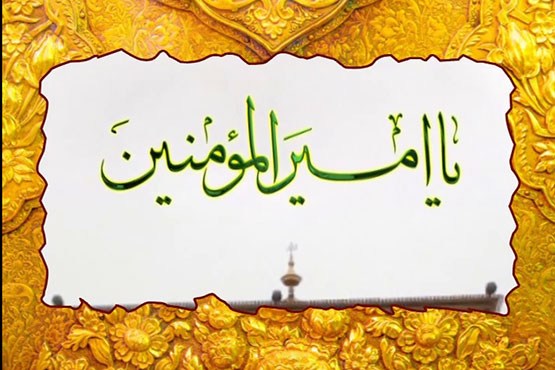 یا امیرَالمؤمنین